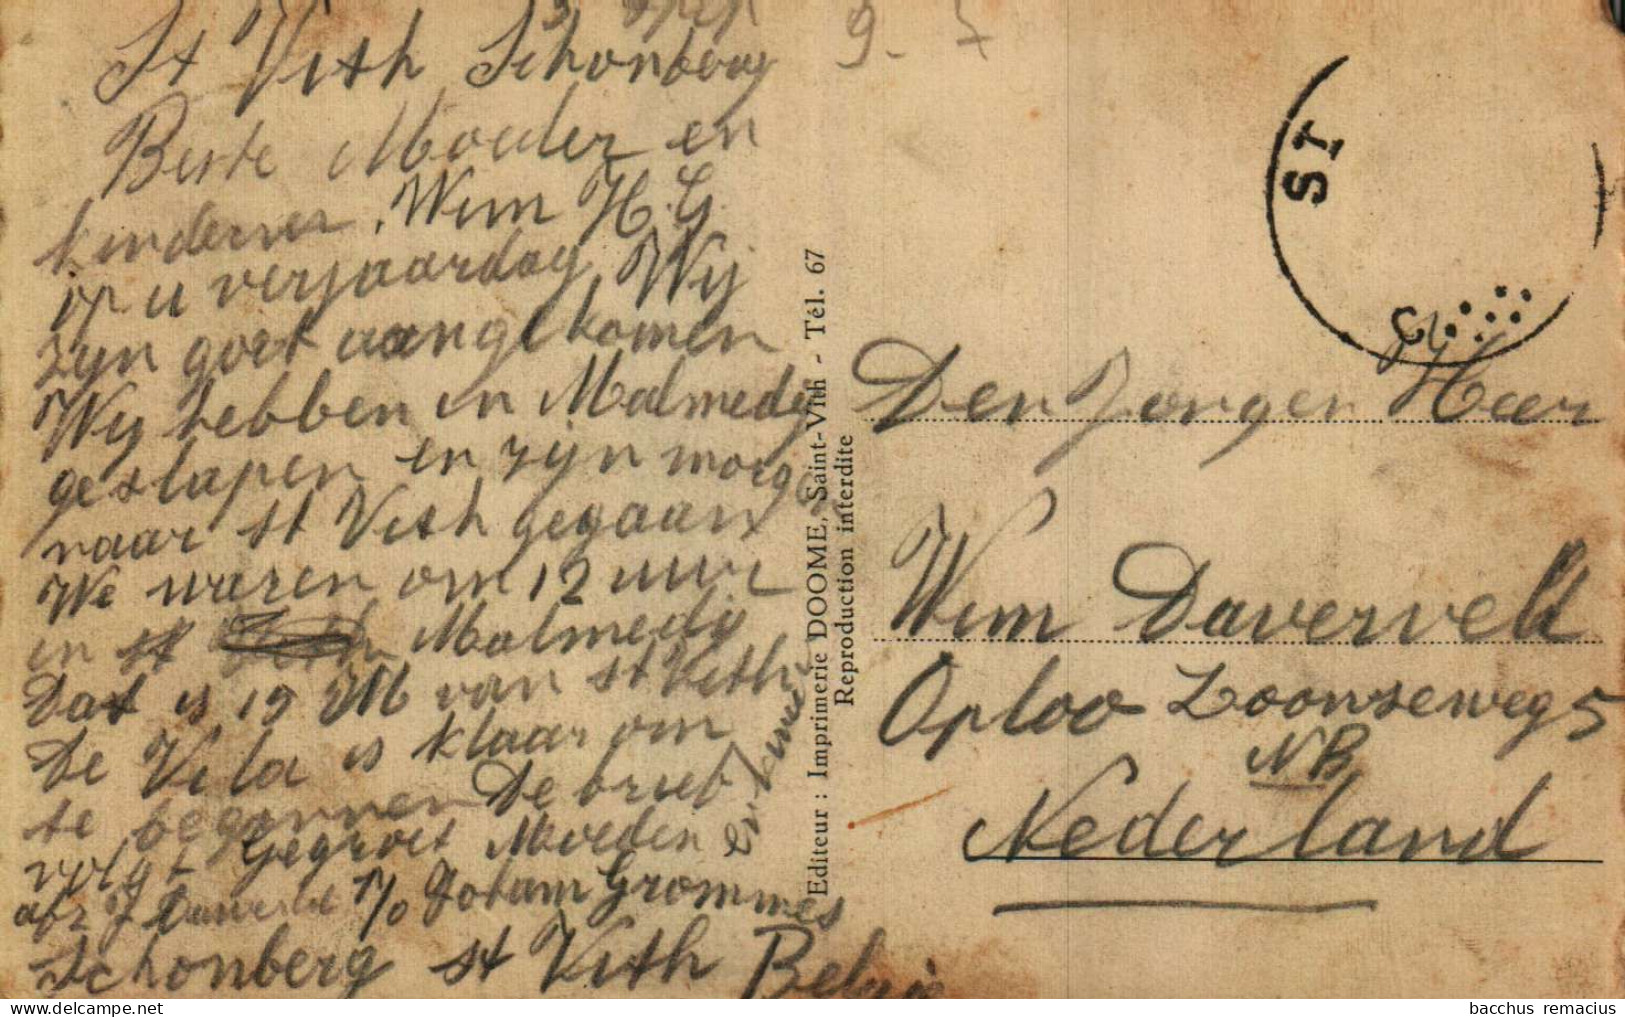 9 - 7
St Vith Schonberg
Beste Moeder en
kinderen, Wim H.G.
op u verjaardag Wij
zyn goet aangekomen
Wij hebben in Malmedy
geslapen en zijn morgen
naar st Vith gegaan
We waren om 12 uur
in st Malmedy
Dat is 19 KM van st Vith
De Vila is klaar om
te beginnen De brief
volgt Gegroet Moeder
en kinder
afz J Daverveld p/o Johan Grommes
Schonberg st Vith Belgie
Editeur : Imprimerie DOOME, Saint-Vith - Tél. 67
Reproduction interdite
ST
Den Jongen Heer
Wim Daverveld
Oploo Loonseweg 5
NB
Nederland
bacchus remacius